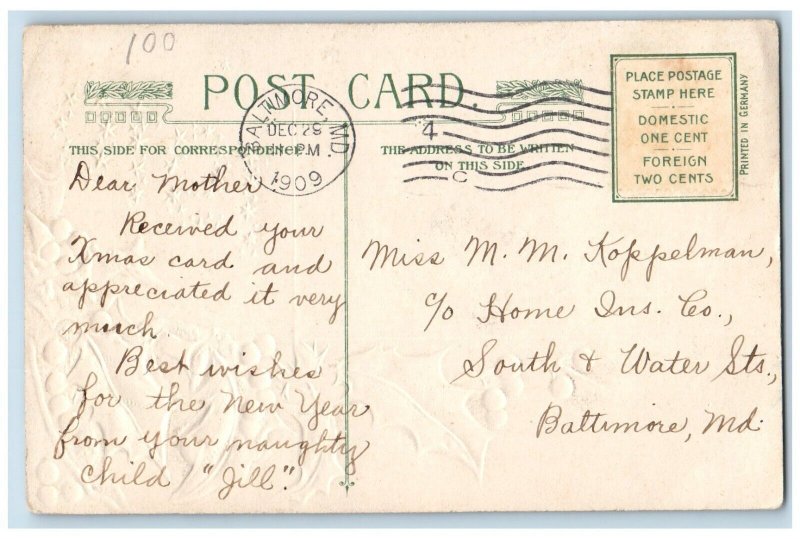 100
POST CARD.
THIS SIDE FOR CORRESPONDENCE.
THE ADDRESS TO BE WRITTEN
ON THIS SIDE
PLACE POSTAGE
STAMP HERE
DOMESTIC
ONE CENT
FOREIGN
TWO CENTS
PRINTED IN GERMANY
BALTIMORE, MD.
DEC 29
PM
1909
4
Dear Mother
Received your
Xmas card and
appreciated it very
much.
Best wishes
for the New Year
from your naughty
child "Jill".
Miss M. M. Koppelman,
c/o Home Ins. Co.,
South & Water Sts.,
Baltimore, Md.